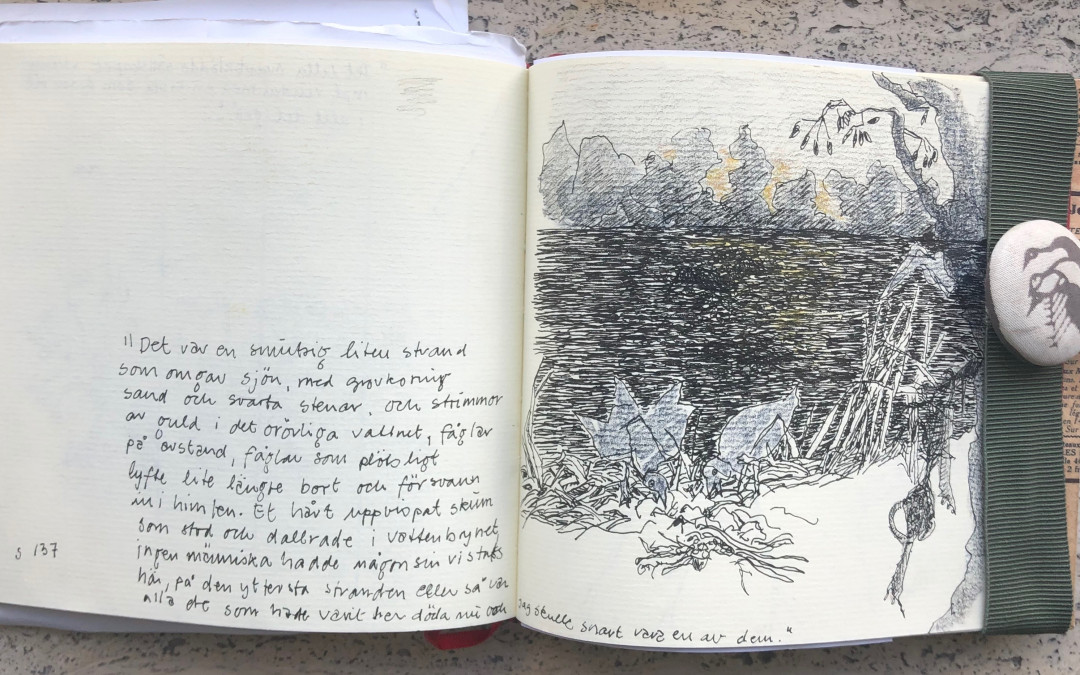 "Det var en smutsig liten strand
som omgav sjön, med grovkornig
sand och svarta stenar, och strimmor
av guld i det orörliga vattnet, fåglar
på avstånd, fåglar som plötsligt
lyfte lite längre bort och försvann
in i himlen. Et hårt uppvispat skum
som stod och dallrade i vattenbrynet,
ingen människa hade någonsin vistats
här, på den yttersta stranden eller så var
alla de som hade varit her döda nu och
jag skulle snart vara en av dem."
s 137